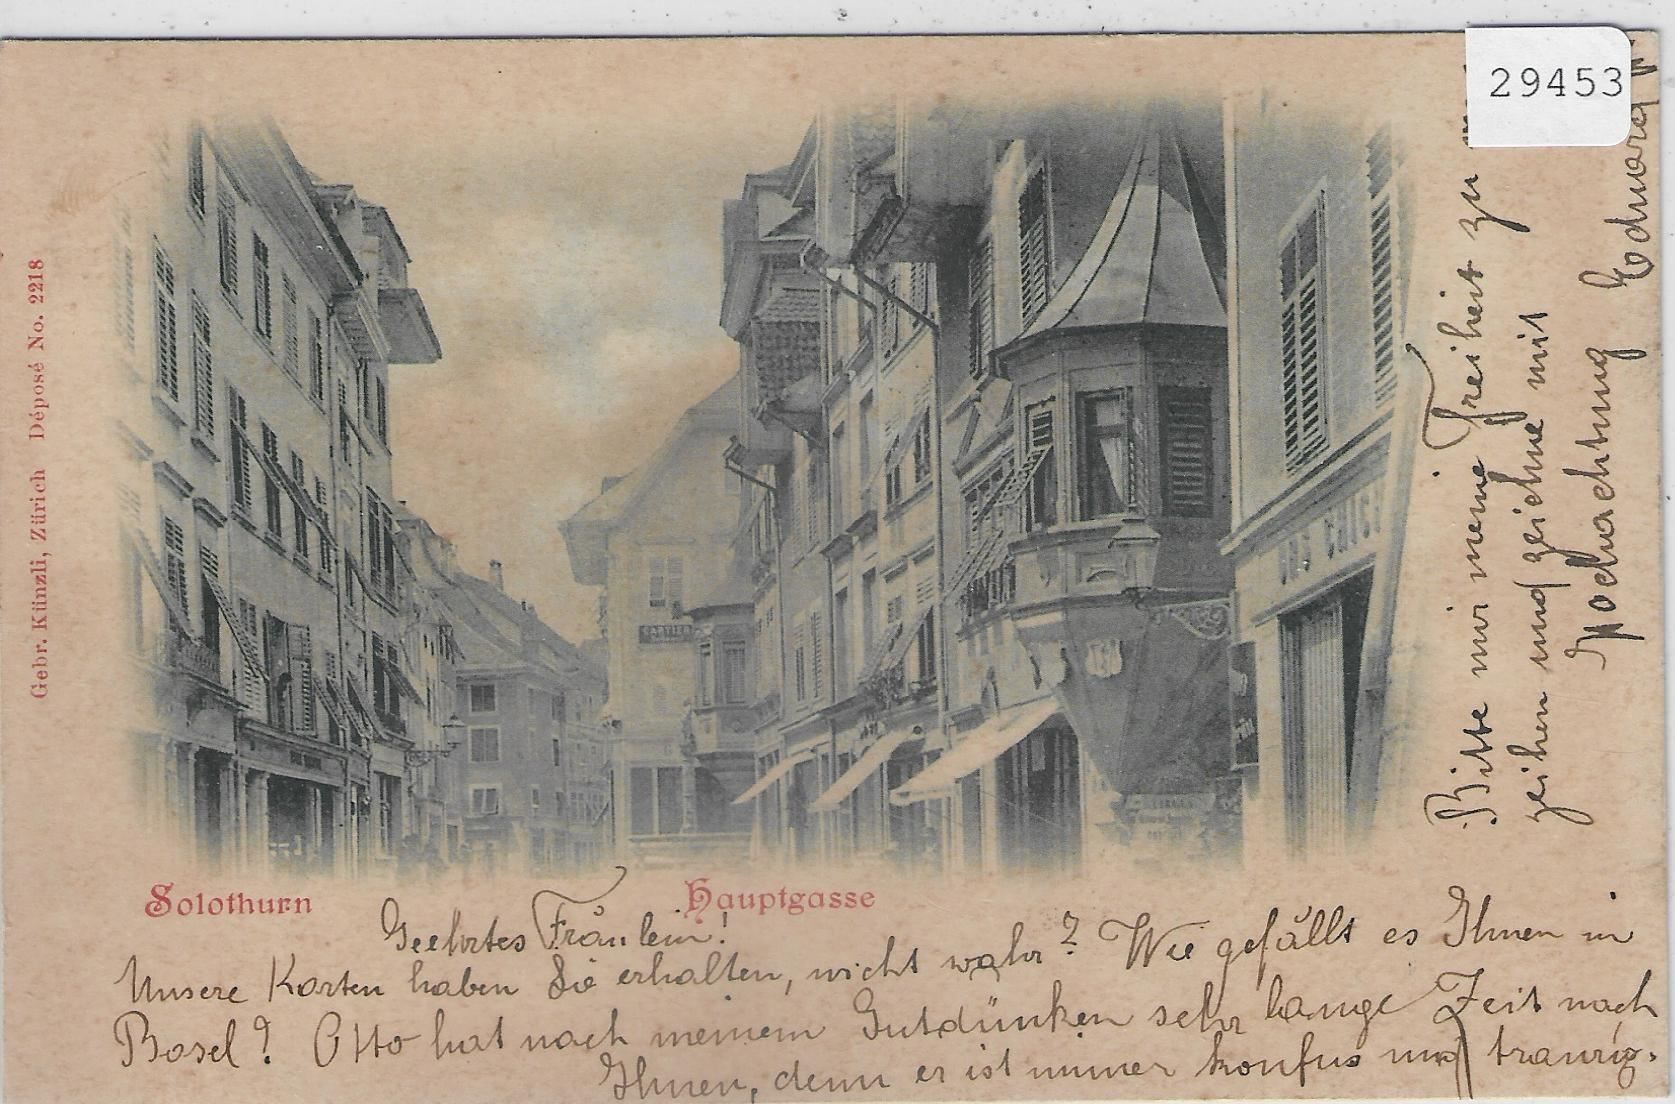 29453
Gebr. Künzli, Zürich Déposé No. 2218
CARTIER
Solothurn Hauptgasse
Geehrtes Fräulein!
Unsere Karten haben Sie erhalten, nicht wahr? Wie gefällt es Ihnen in
Basel? Otto hat nach meinem Gutdünken sehr lange Zeit nach
Ihnen, denn er ist immer konfus und traurig.
Bitte mir meine Freiheit zu
zeihen und zeichne mit
Hochachtung Eduard